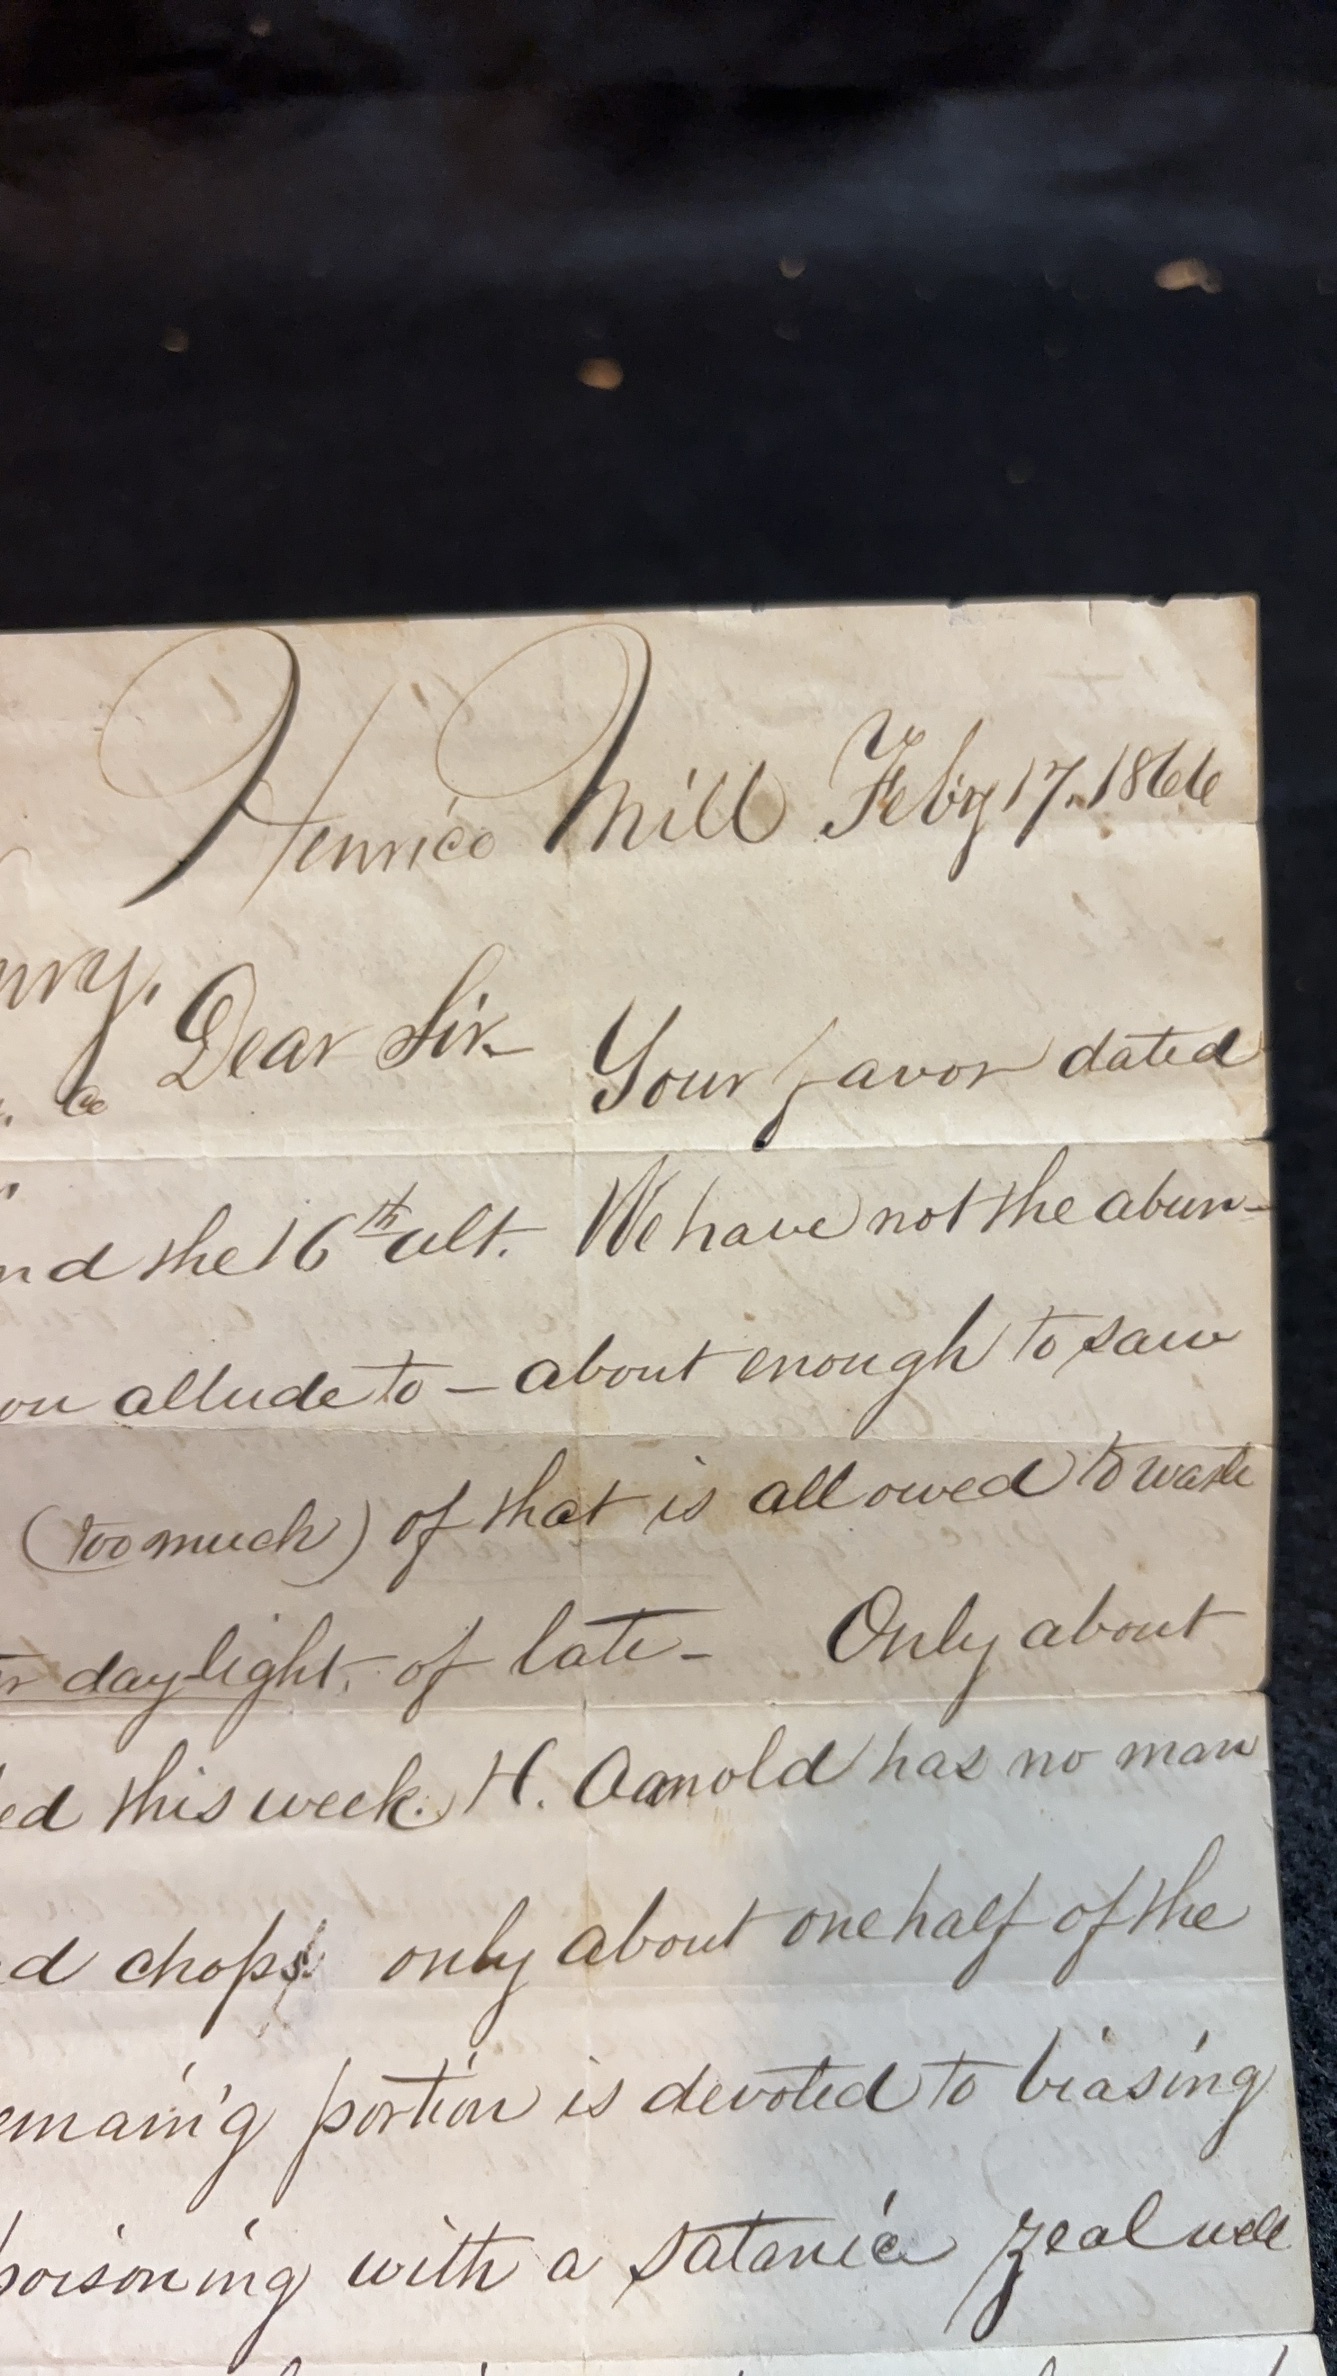 Henrico Mill Feb'ry 17. 1866
Dear Sir - Your favor dated
the 16th ult. We have not the abun-
allude to - about enough to saw
(too much) of that is allowed to waste
daylight, of late - Only about
this week. H. Aarnold has no man
chops only about one half of the
portion is devoted to biasing
with a satanic zeal well